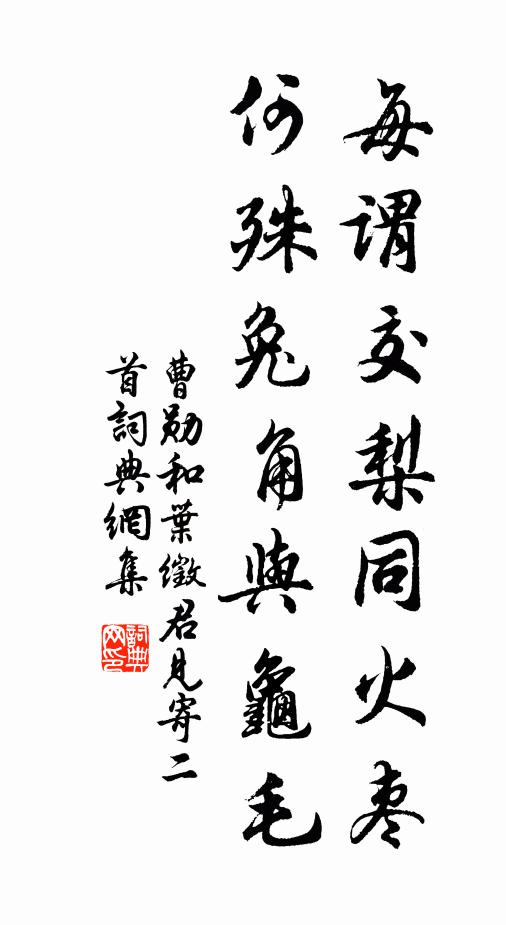 每谓交梨同火枣
何殊兔角與龜毛
曹勋和葉徵君見寄二
首詞典網集
詞典网印